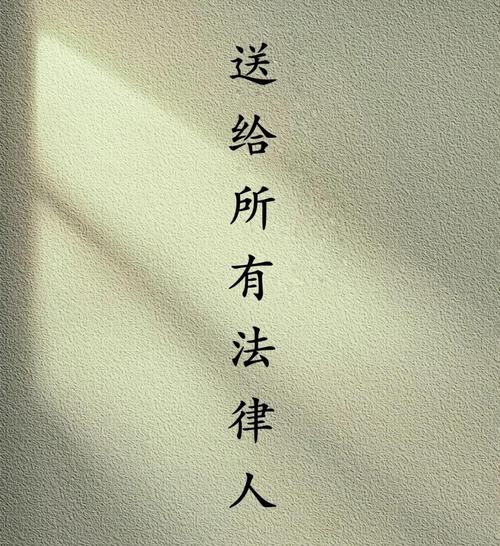 送给所有法律人